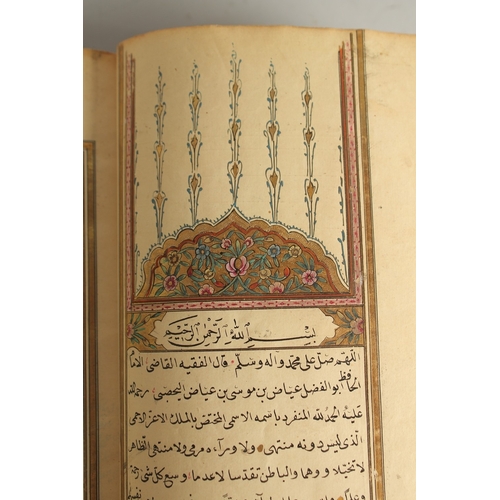 بسم الله الرحمن الرحيم
اللهم صل على محمد وآله وسلم قال الفقيه القاضى الامام
الحافظ ابو الفضل عياض بن موسى بن عياض اليحصبى رحمة الله
عليه الحمد لله المنفرد باسمه الاسمى المختص بالملك الاعز الاحمى
الذى ليس دونه منتهى ولا وراءه مرمى ولا منتهى الظاهر
لا تخيلا ووهما والباطن تقدسا لا عدما وسع كل شئ رحمة
وعلما